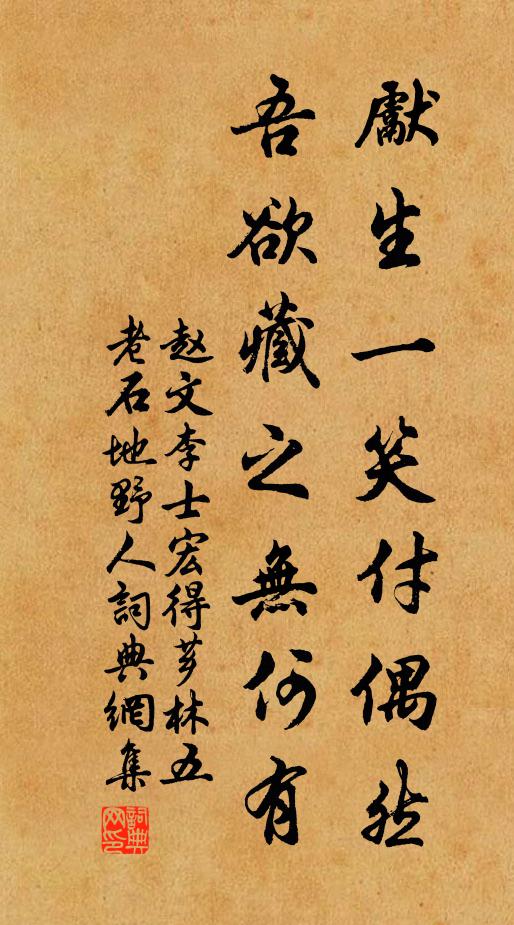 獻生一笑付偶然
吾欲藏之無何有
赵文李士宏得芗林五
老石地野人詞典網集
詞典网印